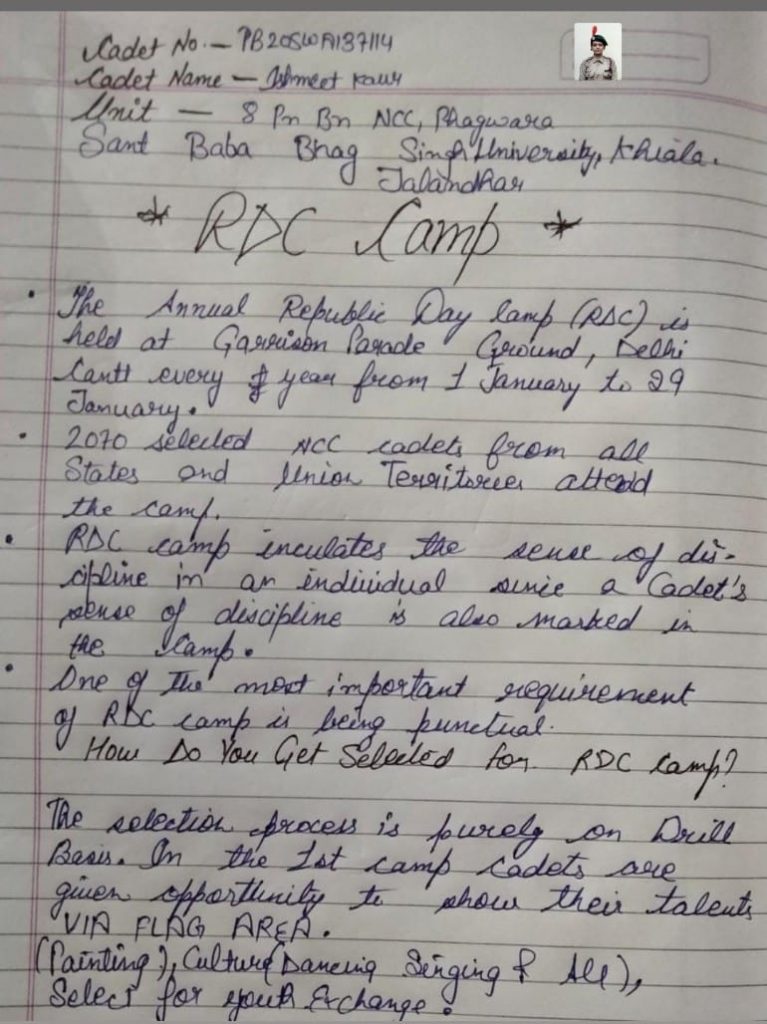 Cadet No. - PB20SWA137114
Cadet Name - Ishmeet Kaur
Unit - 8 Pn Bn NCC, Phagwara
Sant Baba Bhag Singh University, Khiala.
Jalandhar
* RDC Camp *
• The Annual Republic Day Camp (RDC) is
held at Garrison Parade Ground, Delhi
Cantt every year from 1 January to 29
January.
• 2070 selected NCC cadets from all
States and Union Territories attend
the camp.
• RDC camp inculates the sense of dis-
cipline in an individual since a Cadet's
sense of discipline is also marked in
the Camp.
• One of the most important requirement
of RDC camp is being punctual.
How Do You Get Selected for RDC Camp?
The selection process is purely on Drill
Basis. In the 1st camp Cadets are
given opporttunity to show their talents
VIA FLAG AREA.
(Painting), Culture (Dancing Singing & All),
Select for youth Exchange.